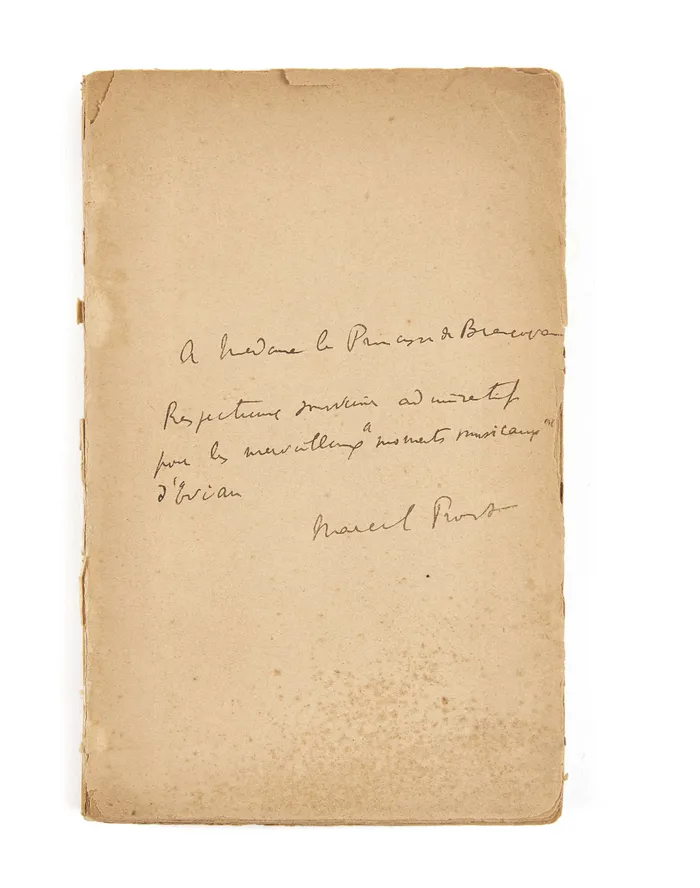 A Madame la Princesse de Brancovan
Respectueux souvenir admiratif
pour les merveilleux "moments musicaux"
d'Évian
Marcel Proust